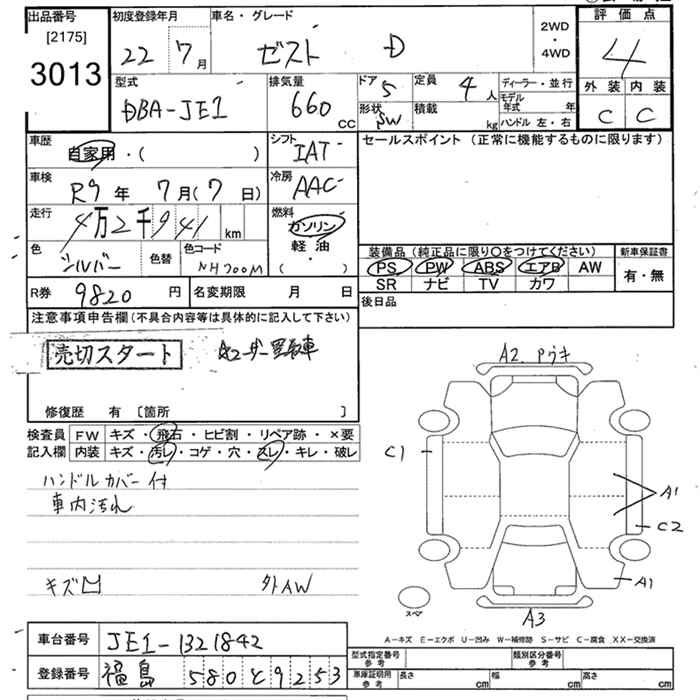 出品番号
[2175]
3013
初度登録年月
22 7月
車名・グレード
ゼスト D
2WD
・
4WD
評価点
4
外装 内装
C C
型式
DBA-JE1
排気量
660 CC
ドア 5
定員 4人
形状 SW
積載 kg
ディーラー・並行
モデル年式 年
ハンドル 左・右
車歴
自家用・( )
シフト
IAT
セールスポイント(正常に機能するものに限ります)
車検
R9年 7月(7日)
冷房
AAC
走行
4万2千941 km
燃料
ガソリン
軽油
( ・ )
色
シルバー
色替
色コード
NH700M
装備品(純正品に限り○をつけてください)
PS PW ABS エアB AW
SR ナビ TV カワ
新車保証書
有・無
R券 9820円
名変期限 月 日
後日品
注意事項申告欄(不具合内容等は具体的に記入して下さい)
売切スタート
修復歴 有 [箇所 ]
検査員
記入欄
FW キズ・飛石・ヒビ割・リペア跡・×要
内装 キズ・汚レ・コゲ・穴・スレ・キレ・破レ
ハンドルカバー付
車内汚れ
キズ凹
外AW
A2 Pウキ
C1
A1
C2
A1
A3
スペア
A-キズ E-エクボ U-凹み W-補修跡 S-サビ C-腐食 XX-交換済
車台番号 JE1-1321842
登録番号 福島 580 と 9253
型式指定番号 参考
類別区分番号 参考
車庫証明用 参考
長さ cm
幅 cm
高さ cm